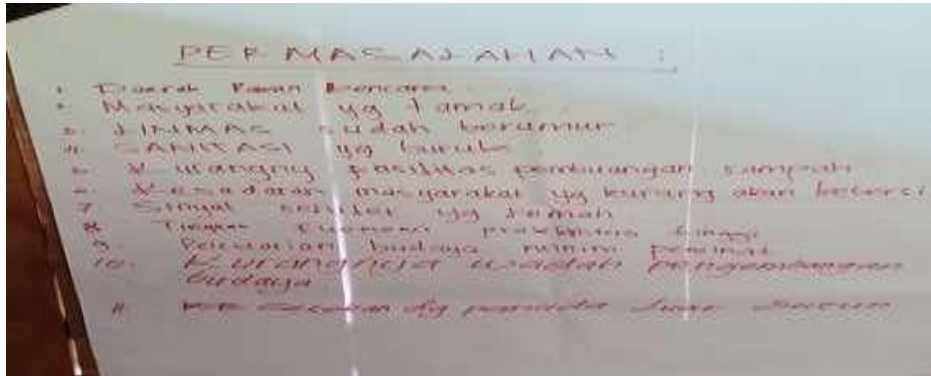 PERMASALAHAN :
1. Daerah Rawan Bencana
2. Masyarakat yg tamak.
3. LINMAS sudah berumur
4. SANITASI yg buruk
5. Kurangny fasilitas pembuangan sampah
6. Kesadaran masyarakat yg kurang akan kebersi
7. Sinyal seluler yg lemah
8. Tingkat tinggi
9. Pelestarian budaya minim peminat
10. Kurangnya wadah pengembangan
budaya
11. dg pemuda luar